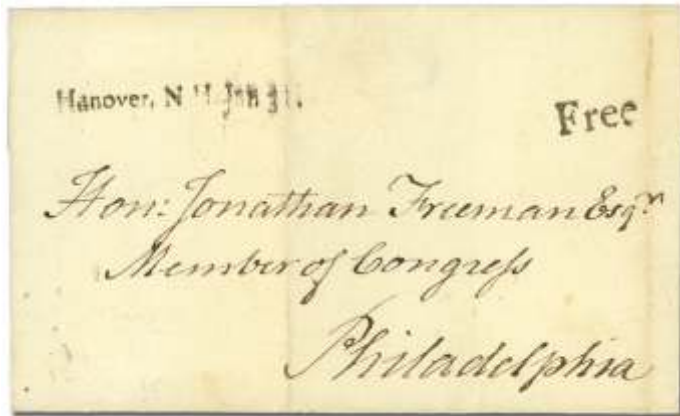 Hanover, N H Jan 31.
Free
Hon: Jonathan Freeman Esqr.
Member of Congreſs
Philadelphia